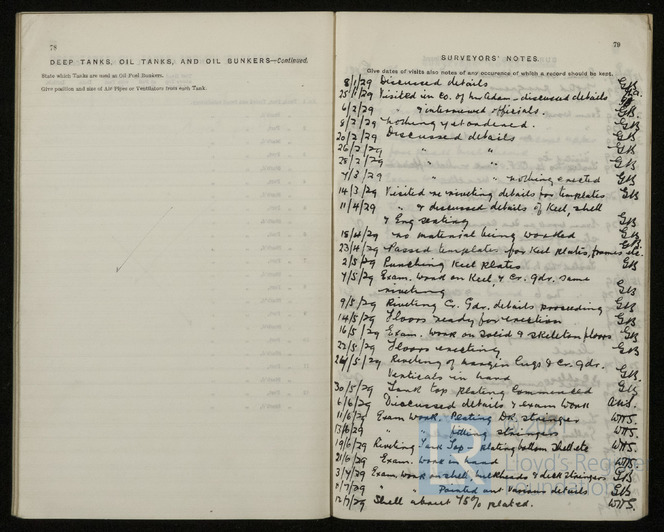 78
DEEP TANKS, OIL TANKS, AND OIL BUNKERS—Continued.
State which Tanks are used as Oil Fuel Bunkers.
Give position and size of Air Pipes or Ventilators from each Tank.
79
SURVEYORS' NOTES.
Give dates of visits also notes of any occurence of which a record should be kept.
8/1/29 Discussed details GB
25/1/29 Visited in co. of - discussed details
6/2/29 " & interviewed officials. GB
8/2/29 nothing yet ordered. GB
20/2/29 Discussed details GB
26/2/29 " " GB
28/2/29 " " GB
7/3/29 " " nothing erected GB
14/3/29 Visited re riveting details for templates GB
11/4/29 " & discussed details of Keel, shell
& Eng seating GB
18/4/29 no material being worked GB
23/4/29 Passed templates for Keel Plates, frames etc. GB
2/5/29 Punching Keel Plates GB
7/5/29 Exam. work on Keel, & Cr. Gdr. some
riveting GB
9/5/29 Riveting Cr. Gdr. details proceeding GB
14/5/29 Floors ready for erection GB
16/5/29 Exam. work on solid & skeleton floors GB
22/5/29 Floors erecting GB
28/5/29 Riveting of margin lugs & Cr. Gdr.
Verticals in hand GB
30/5/29 Tank top plating commenced GB
6/6/29 Discussed details & exam work
11/6/29 Exam work. Plating DK stringers WHS.
13/6/29 " " stringers WHS.
19/6/29 Riveting Tank Top - plating bottom shell etc WHS.
21/6/29 Exam. work in hand WHS.
3/7/29 Exam. work on shell, bulkheads & deck stringers GB
" " Pointed out various details GB
12/7/29 Shell about 75% plated. WHS.
LR
Lloyd's Register
Foundation